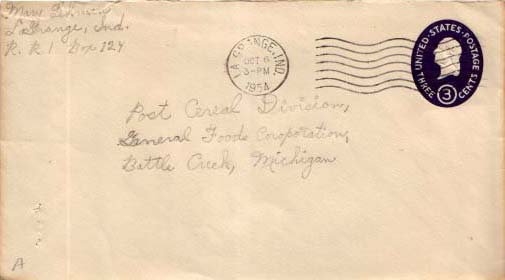 Mary Lehman
LaGrange, Ind.
R. R. 1 Box 124
LA GRANGE, IND.
OCT 6
3-PM
1954
UNITED·STATES·POSTAGE
THREE 3 CENTS
Post Cereal Division,
General Foods Corporation,
Battle Creek, Michigan
A